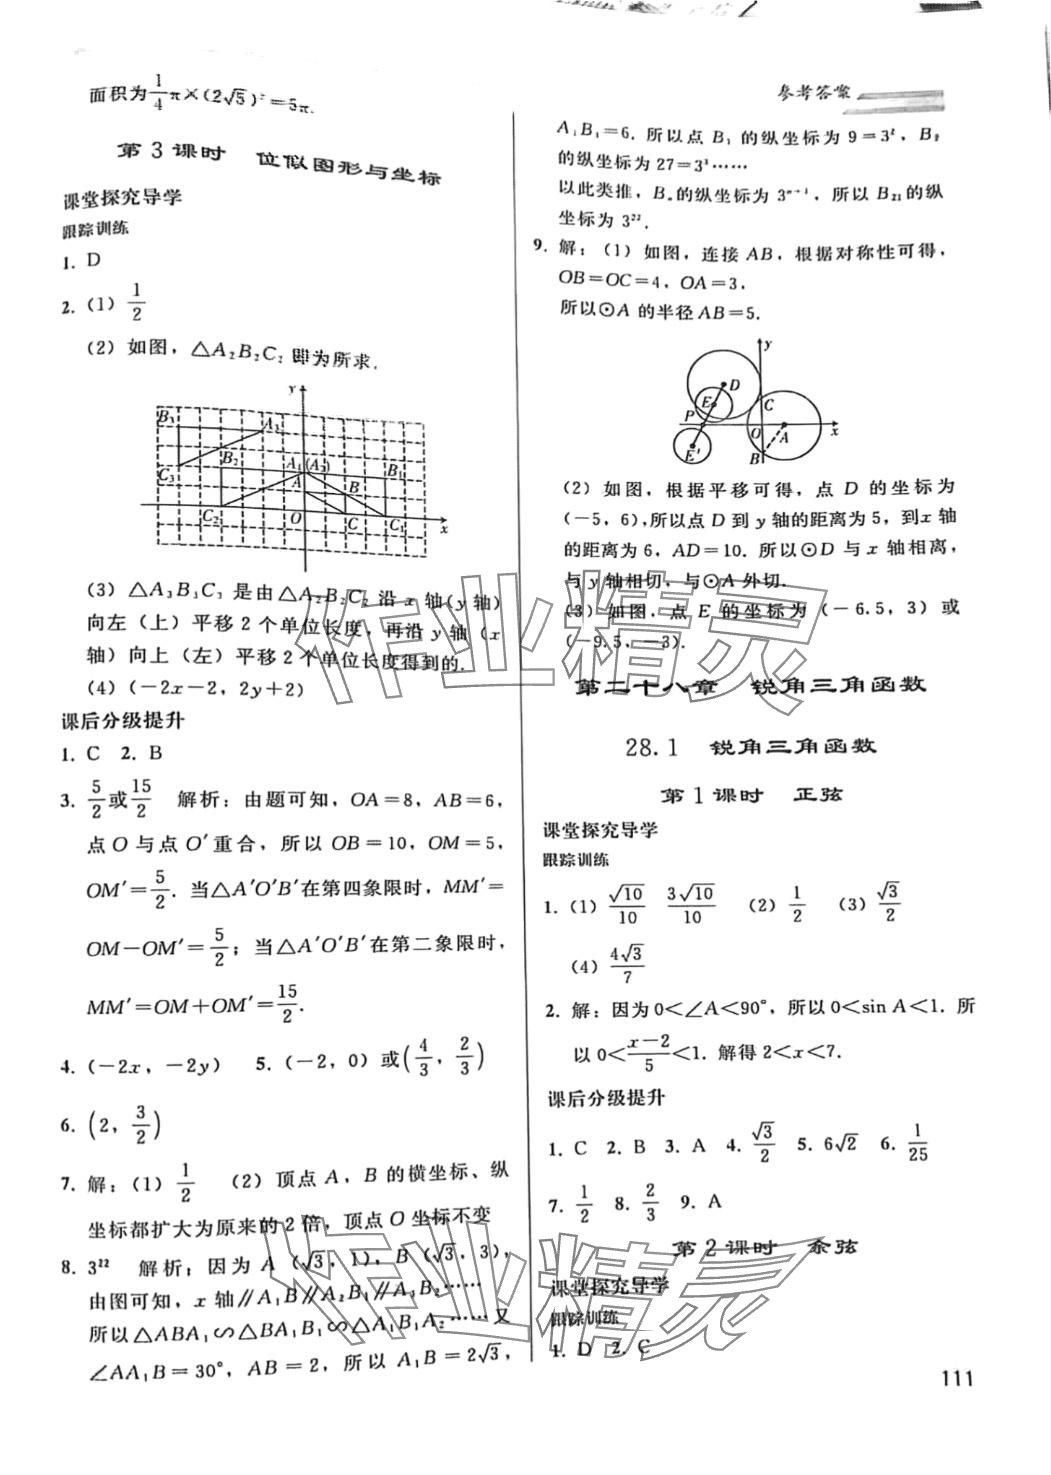 面积为$\frac{1}{4}$π×(2√5)²=5π.
第 3 课时　位似图形与坐标
课堂探究导学
跟踪训练
1. D
2. (1) $\frac{1}{2}$
(2) 如图，△A₂B₂C₂ 即为所求.
y
B₃ A₃
B₂ A₁(A₂) B₁
C₃ A B
C₂ O C C₁ x
(3) △A₃B₃C₃ 是由△A₂B₂C₂ 沿 x 轴(y 轴)
向左（上）平移 2 个单位长度，再沿 y 轴（x
轴）向上（左）平移 2 个单位长度得到的.
(4) (－2x－2, 2y＋2)
课后分级提升
1. C　2. B
3. $\frac{5}{2}$或$\frac{15}{2}$　解析：由题可知，OA＝8，AB＝6，
点 O 与点 O′重合，所以 OB＝10，OM＝5，
OM′＝$\frac{5}{2}$. 当△A′O′B′在第四象限时，MM′＝
OM－OM′＝$\frac{5}{2}$；当△A′O′B′在第二象限时，
MM′＝OM＋OM′＝$\frac{15}{2}$.
4. (－2x，－2y)　5. (－2，0) 或($\frac{4}{3}$，$\frac{2}{3}$)
6. (2，$\frac{3}{2}$)
7. 解：(1) $\frac{1}{2}$　(2) 顶点 A，B 的横坐标、纵
坐标都扩大为原来的 2 倍，顶点 O 坐标不变
8. 3²²　解析：因为 A (√3，1)，B (√3，3)，
由图可知，x 轴∥A₁B∥A₂B₁∥A₃B₂……
所以△ABA₁∽△BA₁B₁∽△A₁B₁A₂……又
∠AA₁B＝30°，AB＝2，所以 A₁B＝2√3，
参考答案
A₁B₁＝6. 所以点 B₁ 的纵坐标为 9＝3²，B₂
的纵坐标为 27＝3³……
以此类推，Bₙ 的纵坐标为 3ⁿ⁺¹，所以 B₂₁ 的纵
坐标为 3²².
9. 解：(1) 如图，连接 AB，根据对称性可得，
OB＝OC＝4，OA＝3，
所以⊙A 的半径 AB＝5.
y
D
E C
P O A x
E′ B
(2) 如图，根据平移可得，点 D 的坐标为
(－5，6)，所以点 D 到 y 轴的距离为 5，到x 轴
的距离为 6，AD＝10. 所以⊙D 与 x 轴相离，
与 y 轴相切，与⊙A 外切.
(3) 如图，点 E 的坐标为 (－6.5，3) 或
(－9.5，－3).
第二十八章　锐角三角函数
28.1　锐角三角函数
第 1 课时　正弦
课堂探究导学
跟踪训练
1. (1) $\frac{\sqrt{10}}{10}$　$\frac{3\sqrt{10}}{10}$　(2) $\frac{1}{2}$　(3) $\frac{\sqrt{3}}{2}$
(4) $\frac{4\sqrt{3}}{7}$
2. 解：因为 0＜∠A＜90°，所以 0＜sin A＜1. 所
以 0＜$\frac{x-2}{5}$＜1. 解得 2＜x＜7.
课后分级提升
1. C　2. B　3. A　4. $\frac{\sqrt{3}}{2}$　5. 6√2　6. $\frac{1}{25}$
7. $\frac{1}{2}$　8. $\frac{2}{3}$　9. A
第 2 课时　余弦
课堂探究导学
跟踪训练
1. D　2. C
111
作业精灵
作业精灵